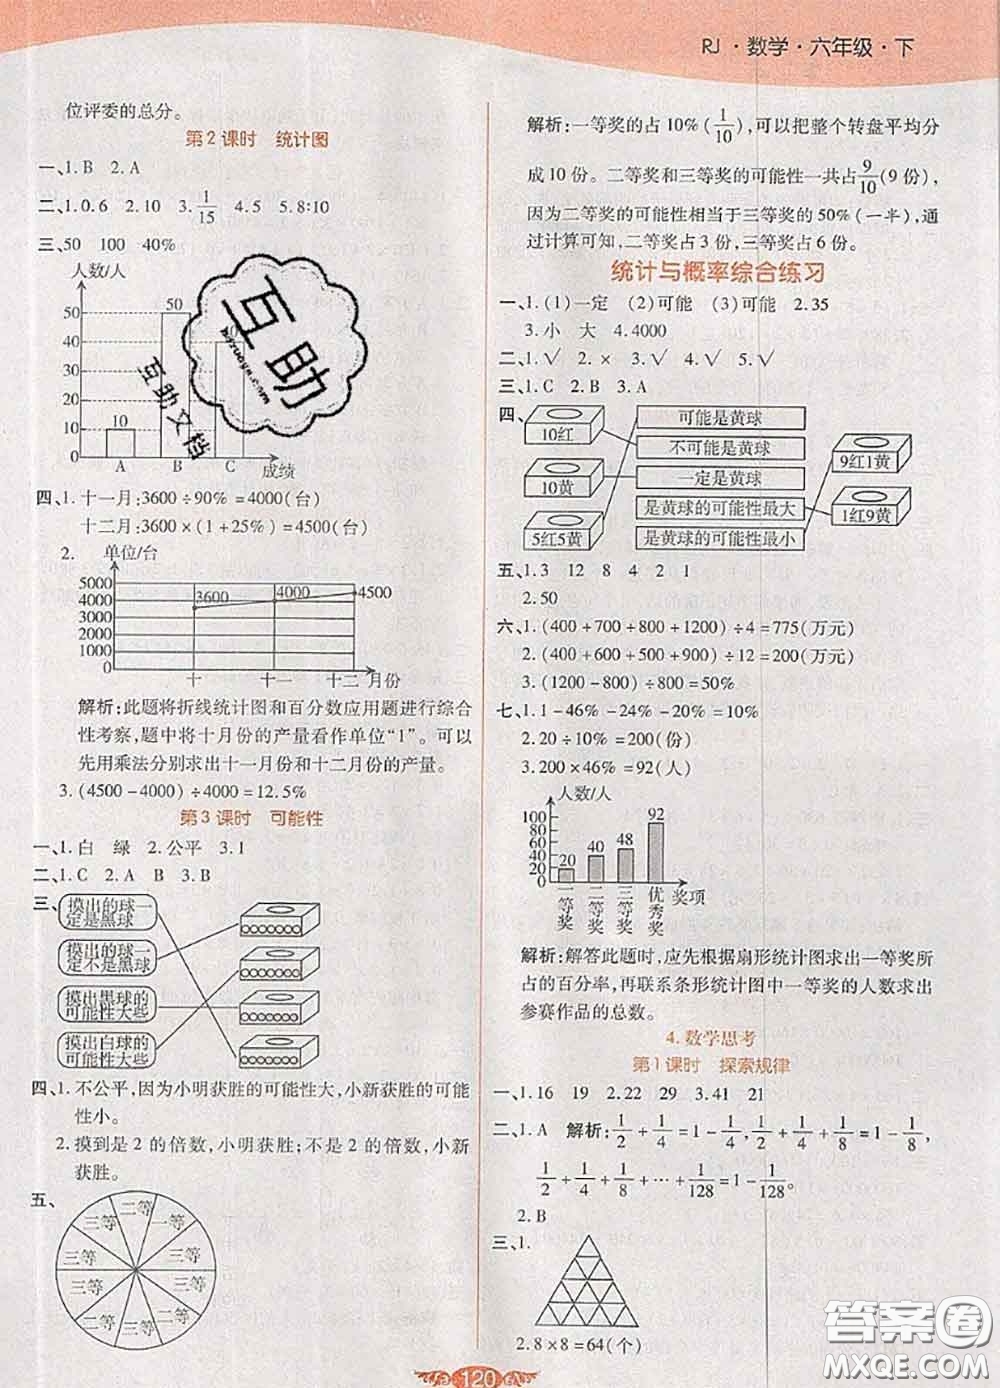 RJ·数学·六年级·下
位评委的总分。
第2课时 统计图
一、1.B 2.A
二、1.0.6 2.10 3.1/15 4.5 5.8∶10
三、50 100 40%
人数/人
50
40
30
20
10
0
10
50
A B C 成绩
四、1.十一月:3600÷90%=4000(台)
十二月:3600×(1+25%)=4500(台)
2. 单位/台
5000
4000
3000
2000
1000
0
3600
4000
4500
十 十一 十二 月份
解析:此题将折线统计图和百分数应用题进行综合
性考察,题中将十月份的产量看作单位“1”。可以
先用乘法分别求出十一月份和十二月份的产量。
3.(4500-4000)÷4000=12.5%
第3课时 可能性
一、1.白 绿 2.公平 3.1
二、1.C 2.A B 3.B
三、
摸出的球一
定是黑球
摸出的球一
定不是黑球
摸出黑球的
可能性大些
摸出白球的
可能性大些
四、1.不公平,因为小明获胜的可能性大,小新获胜的可能
性小。
2.摸到是2的倍数,小明获胜;不是2的倍数,小新
获胜。
五、
二等
一等
三等
三等
三等
二等
三等
二等
三等
三等
解析:一等奖的占10%(1/10),可以把整个转盘平均分
成10份。二等奖和三等奖的可能性一共占9/10(9份),
因为二等奖的可能性相当于三等奖的50%(一半),通
过计算可知,二等奖占3份,三等奖占6份。
统计与概率综合练习
一、1.(1)一定 (2)可能 (3)可能 2.35
3.小 大 4.4000
二、1.√ 2.× 3.√ 4.√ 5.√
三、1.C 2.B 3.A
四、
10红
10黄
5红5黄
可能是黄球
不可能是黄球
一定是黄球
是黄球的可能性最大
是黄球的可能性最小
9红1黄
1红9黄
五、1.3 12 8 4 2 1
2.50
六、1.(400+700+800+1200)÷4=775(万元)
2.(400+600+500+900)÷12=200(万元)
3.(1200-800)÷800=50%
七、1.1-46%-24%-20%=10%
2.20÷10%=200(份)
3.200×46%=92(人)
人数/人
100
80
60
40
20
0
20
40
48
92
一等奖 二等奖 三等奖 优秀奖 奖项
解析:解答此题时,应先根据扇形统计图求出一等奖所
占的百分率,再联系条形统计图中一等奖的人数求出
参赛作品的总数。
4.数学思考
第1课时 探索规律
一、1.16 19 2.22 29 3.41 21
二、1.A 解析:1/2+1/4=1-1/4,1/2+1/4+1/8=1-1/8,
1/2+1/4+1/8+…+1/128=1-1/128。
2.B
三、1.
2.8×8=64(个)
120
互助
互助文档
答案圈
MXQE.COM